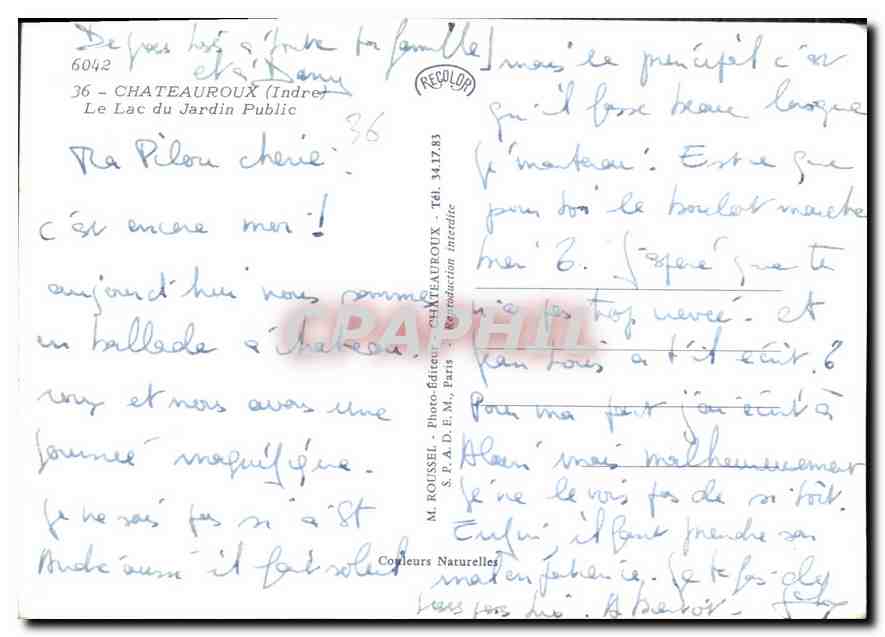 De gros
à toute ta famille
et à Dany
6042
36 - CHATEAUROUX (Indre)
Le Lac du Jardin Public
36
RECOLOR
Ma Pilou chérie
c'est encore moi !
aujourd'hui nous sommes
en ballade à Chateau.
roux et nous avons une
journeé magnifique.
je ne sais pas si à St
André aussi il fait soleil
M. ROUSSEL - Photo-Éditeur - CHATEAUROUX - Tél. 34.17.83
S. P. A. D. E. M., Paris - Reproduction interdite
CPAPHIL
Couleurs Naturelles
mais le principal c'est
qu'il fasse beau lorsque
je monterai. Est ce que
pour toi le boulot marche
bien ? J'espère que tu
n'as pas trop nerveé. et
Jean Louis a t'il écrit ?
Pour ma part j'ai écrit à
Alain mais malheureusement
je ne le vois pas de si tôt.
Enfin il faut prendre son
mal en patience. Je te fais
A bientôt -